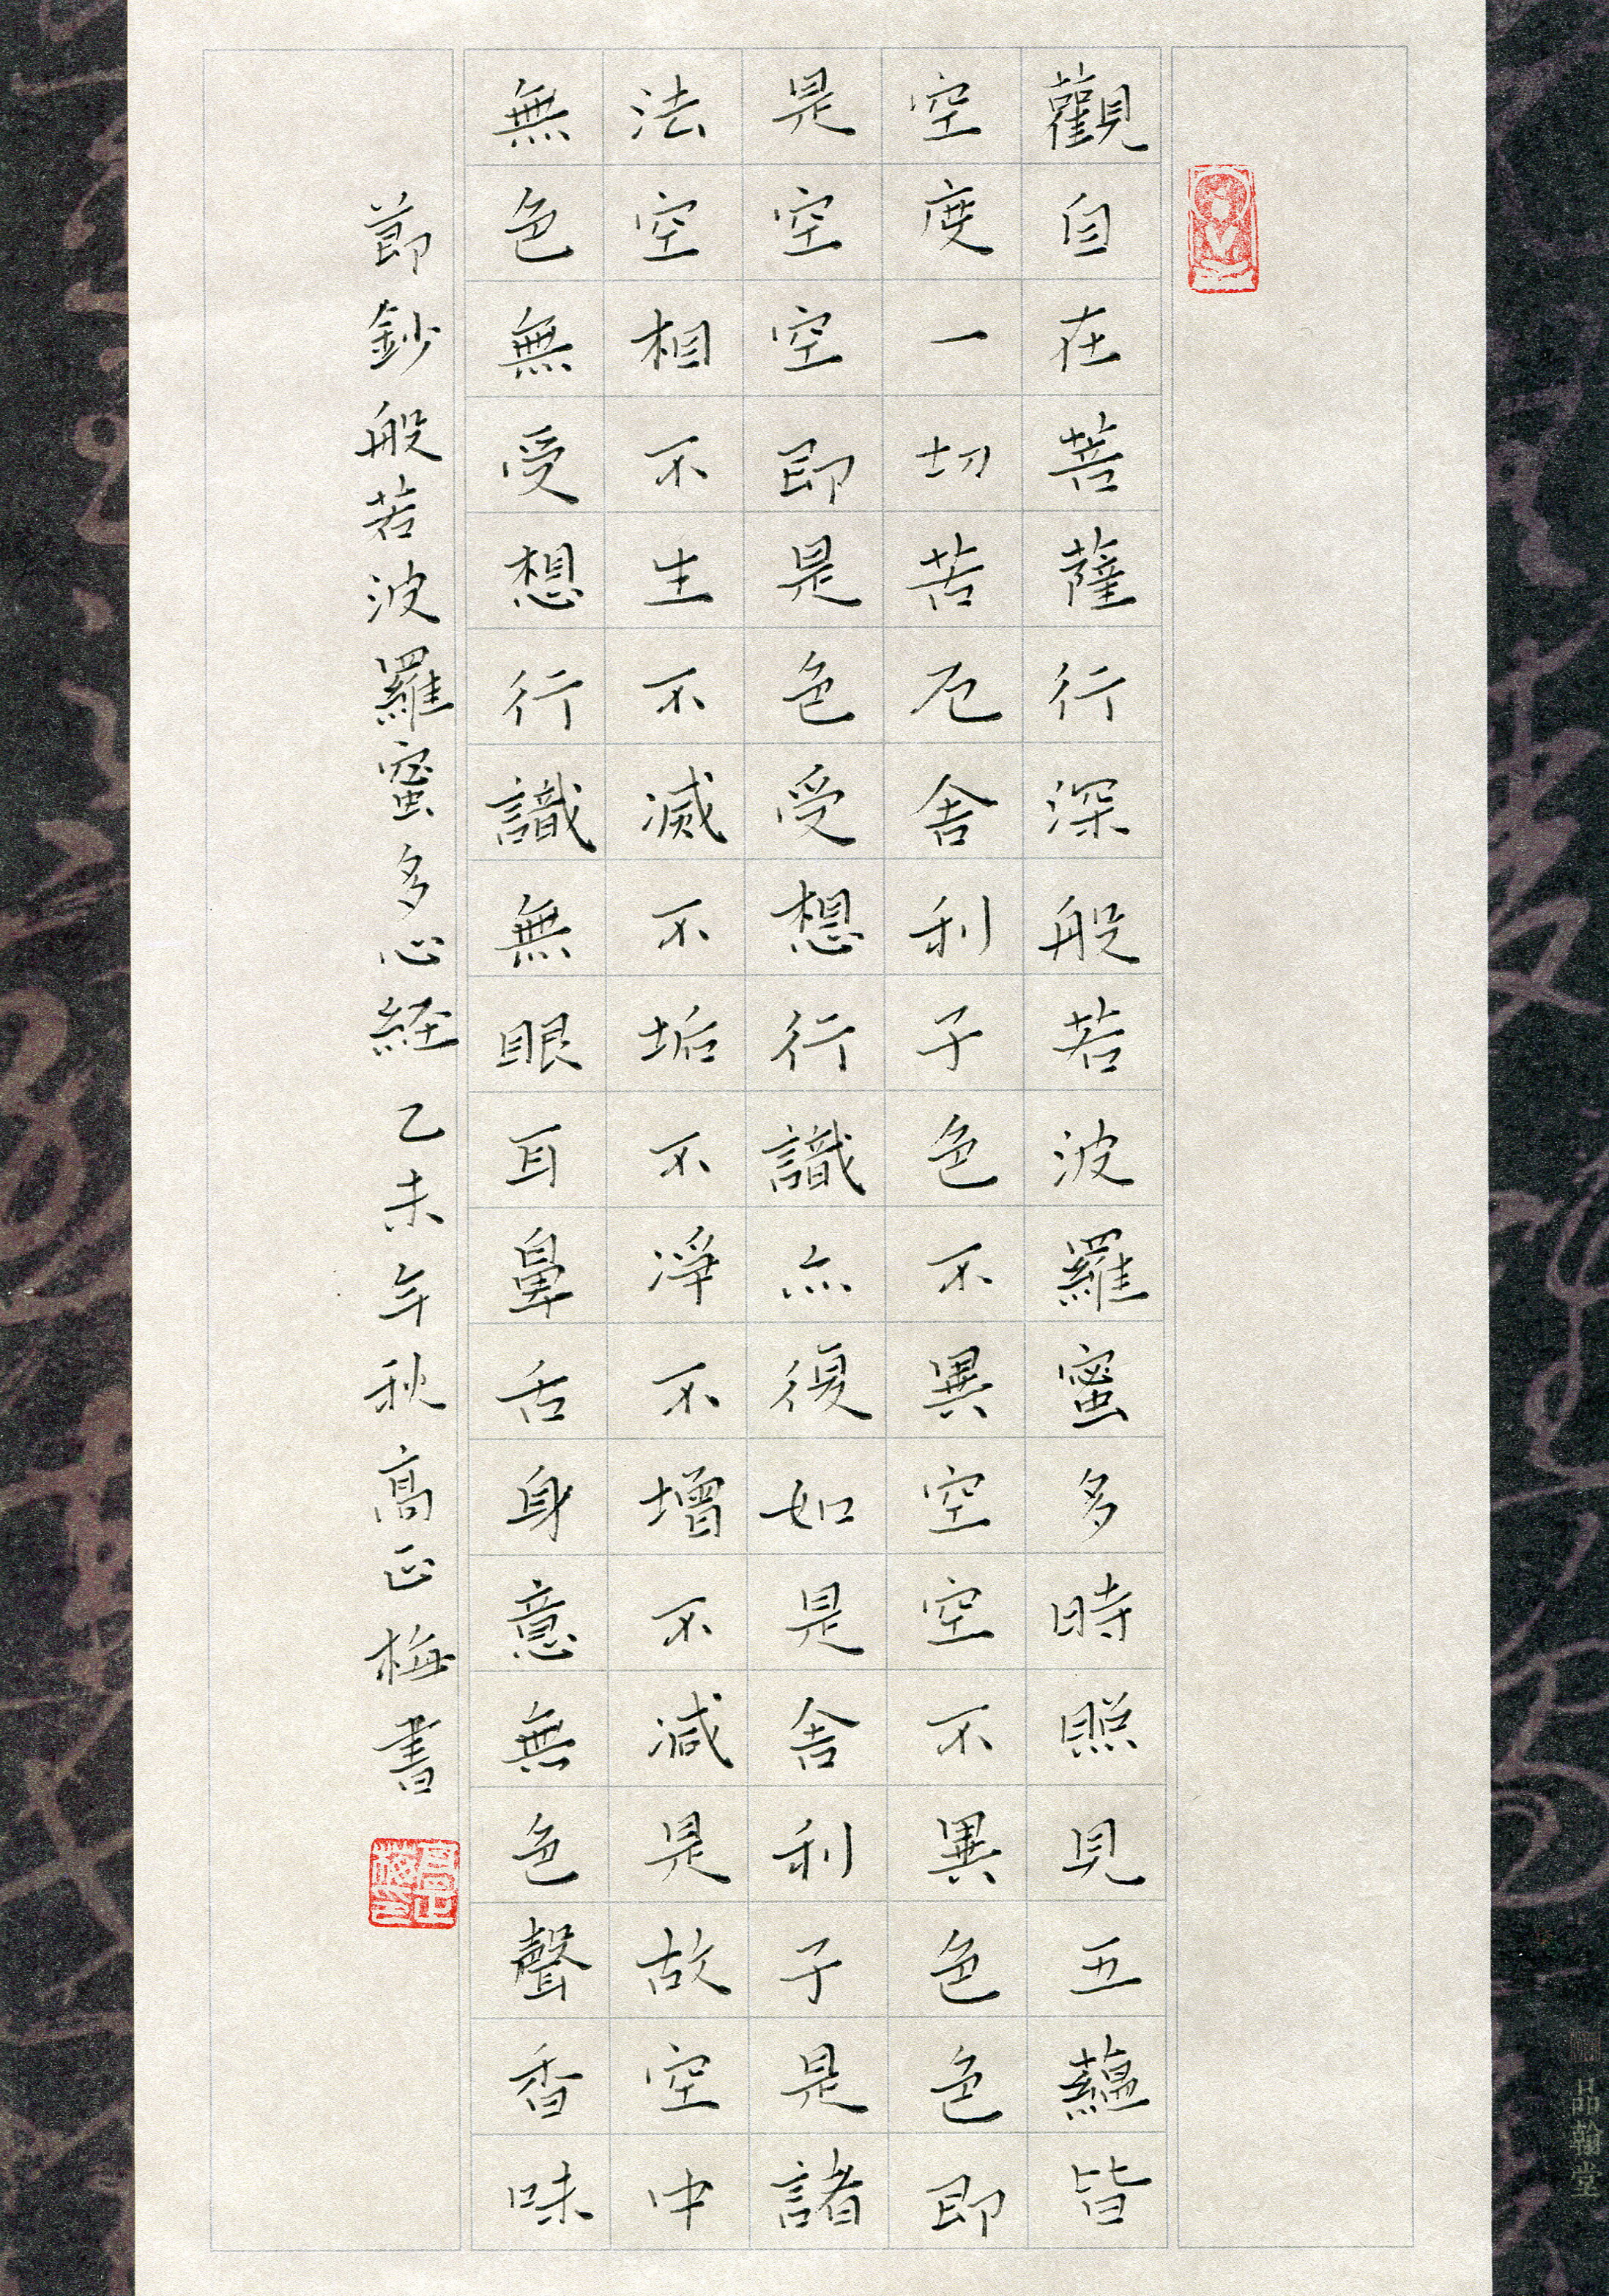 觀自在菩薩行深般若波羅蜜多時照見五蘊皆
空度一切苦厄舍利子色不異空空不異色色即
是空空即是色受想行識亦復如是舍利子是諸
法空相不生不滅不垢不淨不增不減是故空中
無色無受想行識無眼耳鼻舌身意無色聲香味
節鈔般若波羅蜜多心経乙未年秋高正梅書
品翰堂